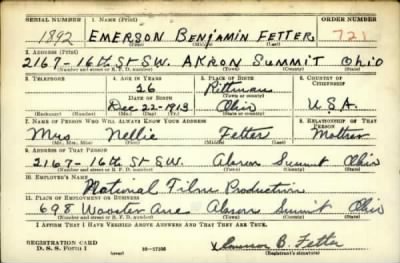 SERIAL NUMBER 1. NAME (Print) ORDER NUMBER
1892 EMERSON BENJAMIN FETTER 721
(First) (Middle) (Last)
2. ADDRESS (Print)
2167-16TH ST S.W. AKRON SUMMIT OHIO
(Number and street or R. F. D. number) (Town) (County) (State)
3. TELEPHONE 4. AGE IN YEARS 5. PLACE OF BIRTH 6. COUNTRY OF CITIZENSHIP
26 Rittman
DATE OF BIRTH (Town or county)
Dec 22-1913 Ohio U.S.A.
(Exchange) (No.) (Mo.) (Day) (Yr.) (State or country)
7. NAME OF PERSON WHO WILL ALWAYS KNOW YOUR ADDRESS 8. RELATIONSHIP OF THAT PERSON
Mrs Nellie Fetter Mother
(Mr., Mrs., Miss) (First) (Middle) (Last)
9. ADDRESS OF THAT PERSON
2167-16th St S.W. Akron Summit Ohio
(Number and street or R. F. D. number) (Town) (County) (State)
10. EMPLOYER'S NAME
National Films Production
11. PLACE OF EMPLOYMENT OR BUSINESS
698 Wooster Ave Akron Summit Ohio
(Number and street or R. F. D. number) (Town) (County) (State)
I AFFIRM THAT I HAVE VERIFIED ABOVE ANSWERS AND THAT THEY ARE TRUE.
REGISTRATION CARD
D. S. S. FORM 1 16-17105 x Emerson B. Fetter